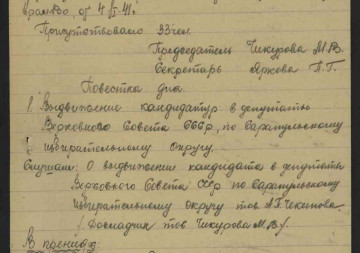 от 4/II-41г.
Присутствовало 33 чел
Председатель Чикурова М.В.
Секретарь Яркова П.Г.
Повестка дня.
1 Выдвижение кандидатур в депутаты
Верховного Совета СССР, по Сарапульскому
избирательному округу.
Слушали: О выдвижении кандидата в депутаты
Верховного Совета СССР по Сарапульскому
избирательному округу тов А.П. Чекинова.
/Докладчик тов Чикурова М.В/.
В прениях: